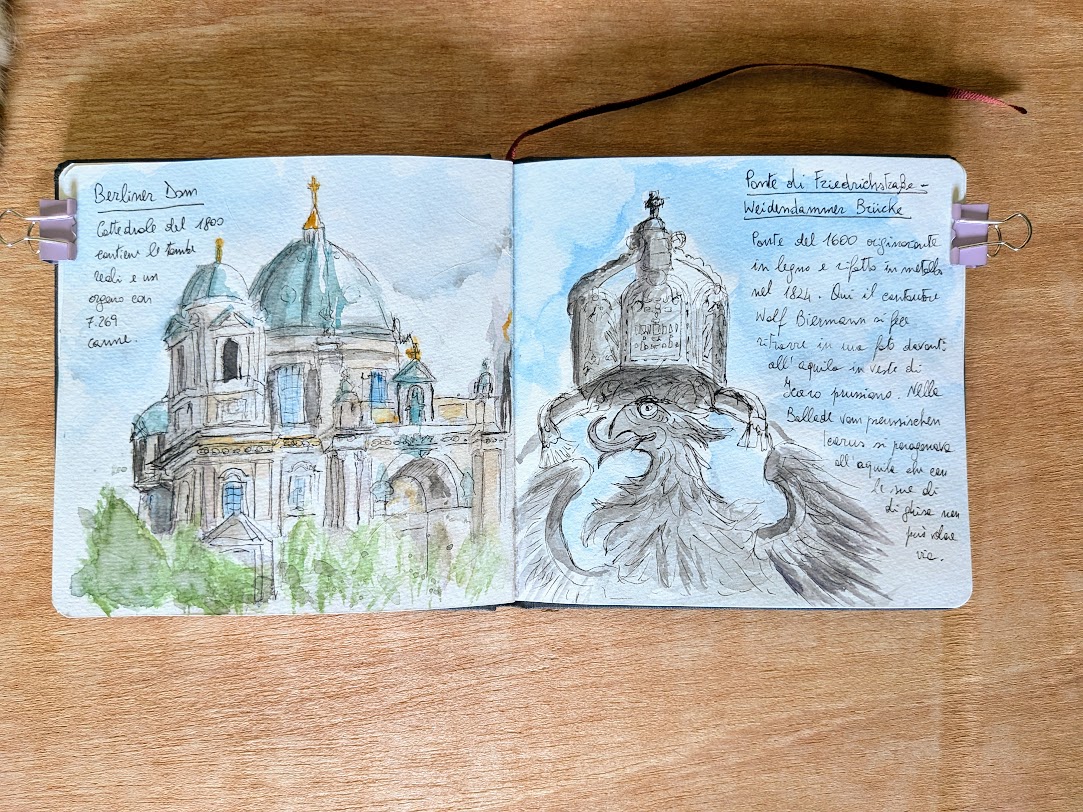 Berliner Dom
Cattedrale del 1800
contiene le tombe
reali e un
organo con
7.269
canne.
Ponte di Friedrichstraße -
Weidendammer Brücke
Ponte del 1600 originariante
in legno e rifatto in metallo
nel 1824. Qui il cantautore
Wolf Biermann si fece
ritrarre in una foto davanti
all'aquila in veste di
Icaro prussiano. Nella
Ballade vom preussischen
Icarus si paragonava
all'aquila che con
le sue ali
di ghisa non
può volare
via.